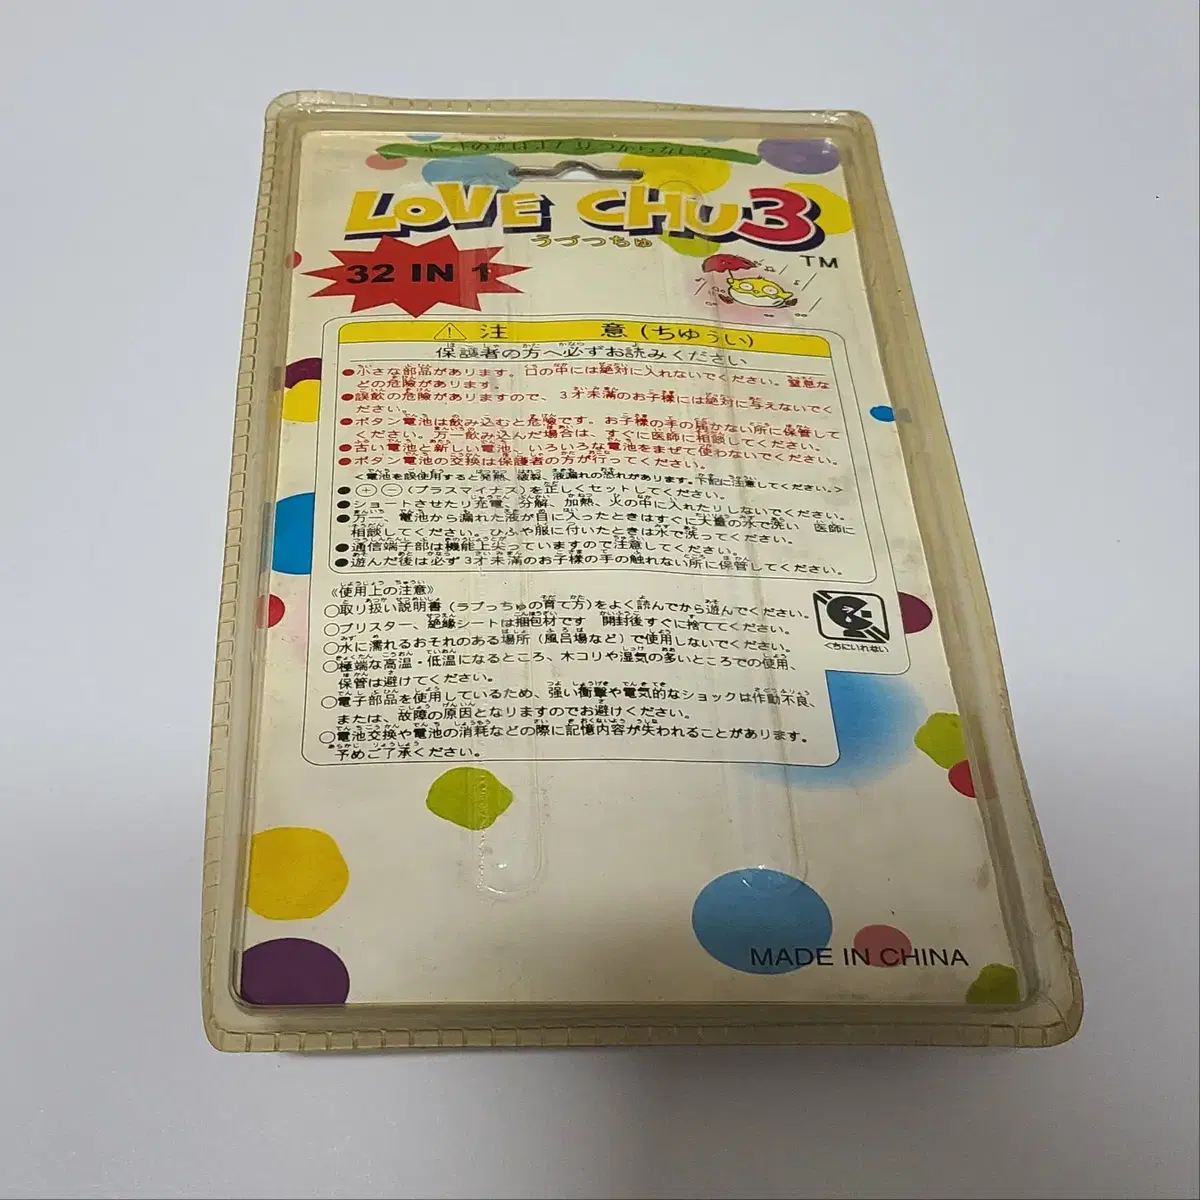 LOVE CHU3
うづつちゅ
TM
32 IN 1
注 意(ちゅうい)
保護者の方へ必ずお読みください
●小さな部品があります。口の中には絶対に入れないでください。窒息な
どの危険があります。
●誤飲の危険がありますので、3才未満のお子様には絶対に与えないでく
ださい。
●ボタン電池は飲み込むと危険です。お子様の手の届かない所に保管して
ください。万一飲み込んだ場合は、すぐに医師に相談してください。
●古い電池と新しい電池、いろいろな電池をまぜて使わないでください。
●ボタン電池の交換は保護者の方が行ってください。
<電池を誤使用すると発熱、破裂、液漏れの恐れがあります。下記に注意してください。>
●⊕⊖(プラスマイナス)を正しくセットしてください。
●ショートさせたり充電、分解、加熱、火の中に入れたりしないでください。
●万一、電池から漏れた液が目に入ったときはすぐに大量の水で洗い 医師に
相談してください。ひふや服に付いたときは水で洗ってください。
●通信端子部は機能上尖っていますので注意してください。
●遊んだ後は必ず3才未満のお子様の手の触れない所に保管してください。
《使用上の注意》
○取り扱い説明書(ラブっちゅの育て方)をよく読んでから遊んでください。
○ブリスター、絶縁シートは梱包材です 開封後すぐに捨ててください。
○水に濡れるおそれのある場所(風呂場など)で使用しないでください。
○極端な高温・低温になるところ、木コリや湿気の多いところでの使用、
保管は避けてください。
○電子部品を使用しているため、強い衝撃や電気的なショックは作動不良、
または、故障の原因となりますのでお避けください。
○電池交換や電池の消耗などの際に記憶内容が失われることがあります。
予めご了承ください。
くちにいれない
MADE IN CHINA